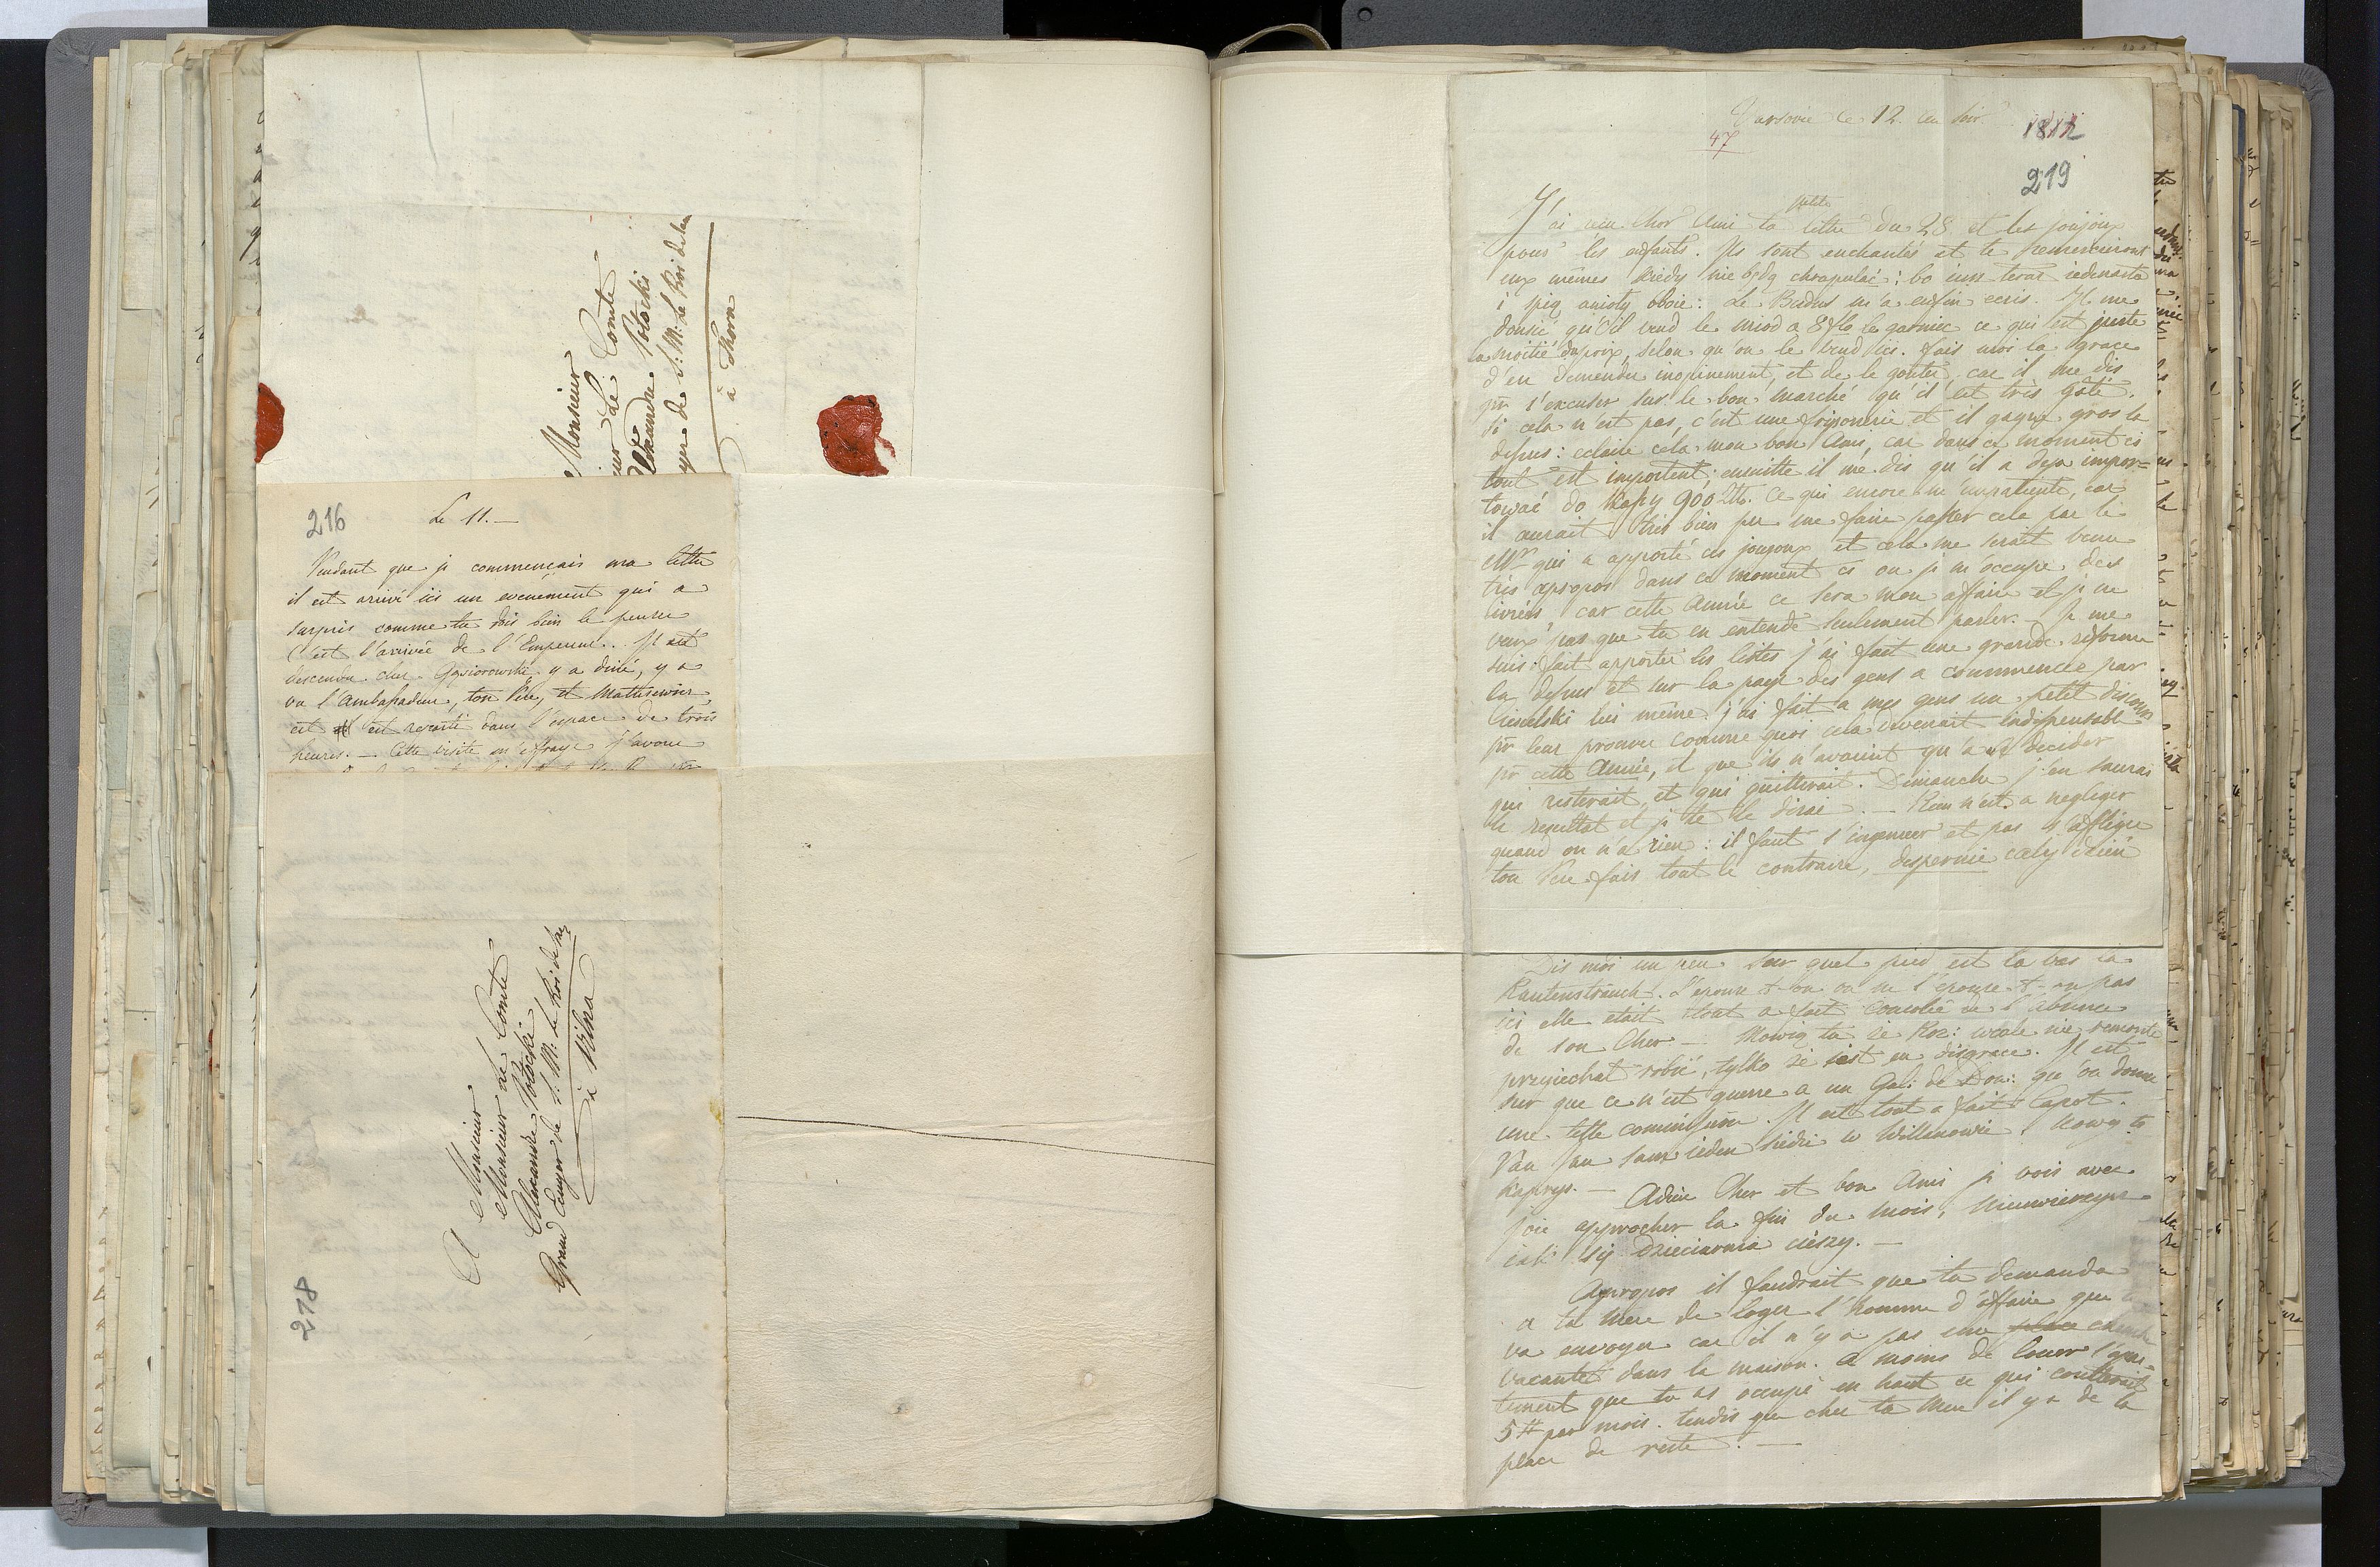 A Monsieur
Monsieur Le Comte
Alexandre Potocki
Ecuyer de S: M: le Roi de Saxe
à Thorn
216
Le 11. —
Pendant que je commençais ma lettre
il est arrivé ici un evenement qui a
surpris comme tu dois bien le penser
C'est l'arrivée de l'Empereur. Il est
descendu chez Gąsiorowski, y a diné, y a
vu l'Ambassadeur, ton Père, et Matusiewicz
et est reparti dans l'espace de trois
heures. — Cette visite m'effraye j'avoue
A Monsieur
Monsieur Le Comte
Alexandre Potocki
Grand Ecuyer de S: M: le Roi de Saxe
à Vilna
218
Varsovie ce 12 au soir
47
1812
219
petite
J'ai reçu Cher Ami ta lettre du 28 et les joujoux
pour les enfants. Ils sont enchantés et te remercieront
eux mêmes kiedy nie będą chrapulać: bo już teraz iedenasta
i śpią anioły oboie: Le Budus m'a enfin ecris. Il me
donsić qu'il vend le miod a 8 fl le garniec ce qui est juste
la moitié du prix, selon qu'on le vend ici. fais moi la grace
d'en demander inopinement, et de le gouter, car il me dis
pr s'excuser sur le bon marché qu'il est très gâté.
Si cela n'est pas, c'est une friponerie et il gagne gros la
dessus: eclaire cela mon bon Ami, car dans ce moment ci
tout est important; ensuite il me dis qu'il a deja impor=
tować do Kassy 900 #. Ce qui encore m'impatiente, car
il aurait très bien pu me faire passer cela par le
Mr qui a apporté ces joujoux et cela me serait venu
très apropos dans ce moment ci ou je m'occupe des
livrées, car cette Année ce sera mon affaire et je ne
veux pas que tu en entende seulement parler. — Je me
suis fait apporter les listes j'ai fait une grande reforme
la dessus et sur la paye des gens a commencer par
Ciesielski lui même. j'ai fait a mes gens un petit discours
pr leur prouver comme quoi cela devenait indispensable
pr cette Année, et que ils n'avaient qu'a se decider
qui resterait, et qui quitterait. Dimanche j'en saurai
le resultat et je te le dirai. — Rien n'est a negliger
quand on n'a rien: il faut s'ingenier et pas s'affliger
ton Père fais tout le contraire, desperuie cały dzień
Dis moi un peu sur quel pied est la bas la
Rautenstrauch. L'epouse-t-on ou ne l'epouse-t-on pas
ici elle etait tout a fait consolée de l'absence
de son Cher — Mowią tu że Roz: wcale nie remonte
przyiechał robić, tylko że iest en disgrace. Il est
sur que ce n'est guerre a un Gal: de Don: qu'on donne
une telle commission. Il est tout a fait Capot.
Pan Jan sam ieden siedzi w Willanowie. Nowy to
kaprys. — Adieu Cher et bon Ami je vois avec
joie approcher la fin du mois, nieuwierzysz
iak się dzieciarnia cieszy. —
Apropos il faudrait que tu demanda
a ta Mere de loger l'homme d'affaire que
va envoyer car il n'y a pas une chambre
vacante dans la maison. A moins de louer l'apar=
tement que tu as occupé en haut ce qui couterait
5 # par mois. tandis que chez ta Mere il y a de la
place de reste. —